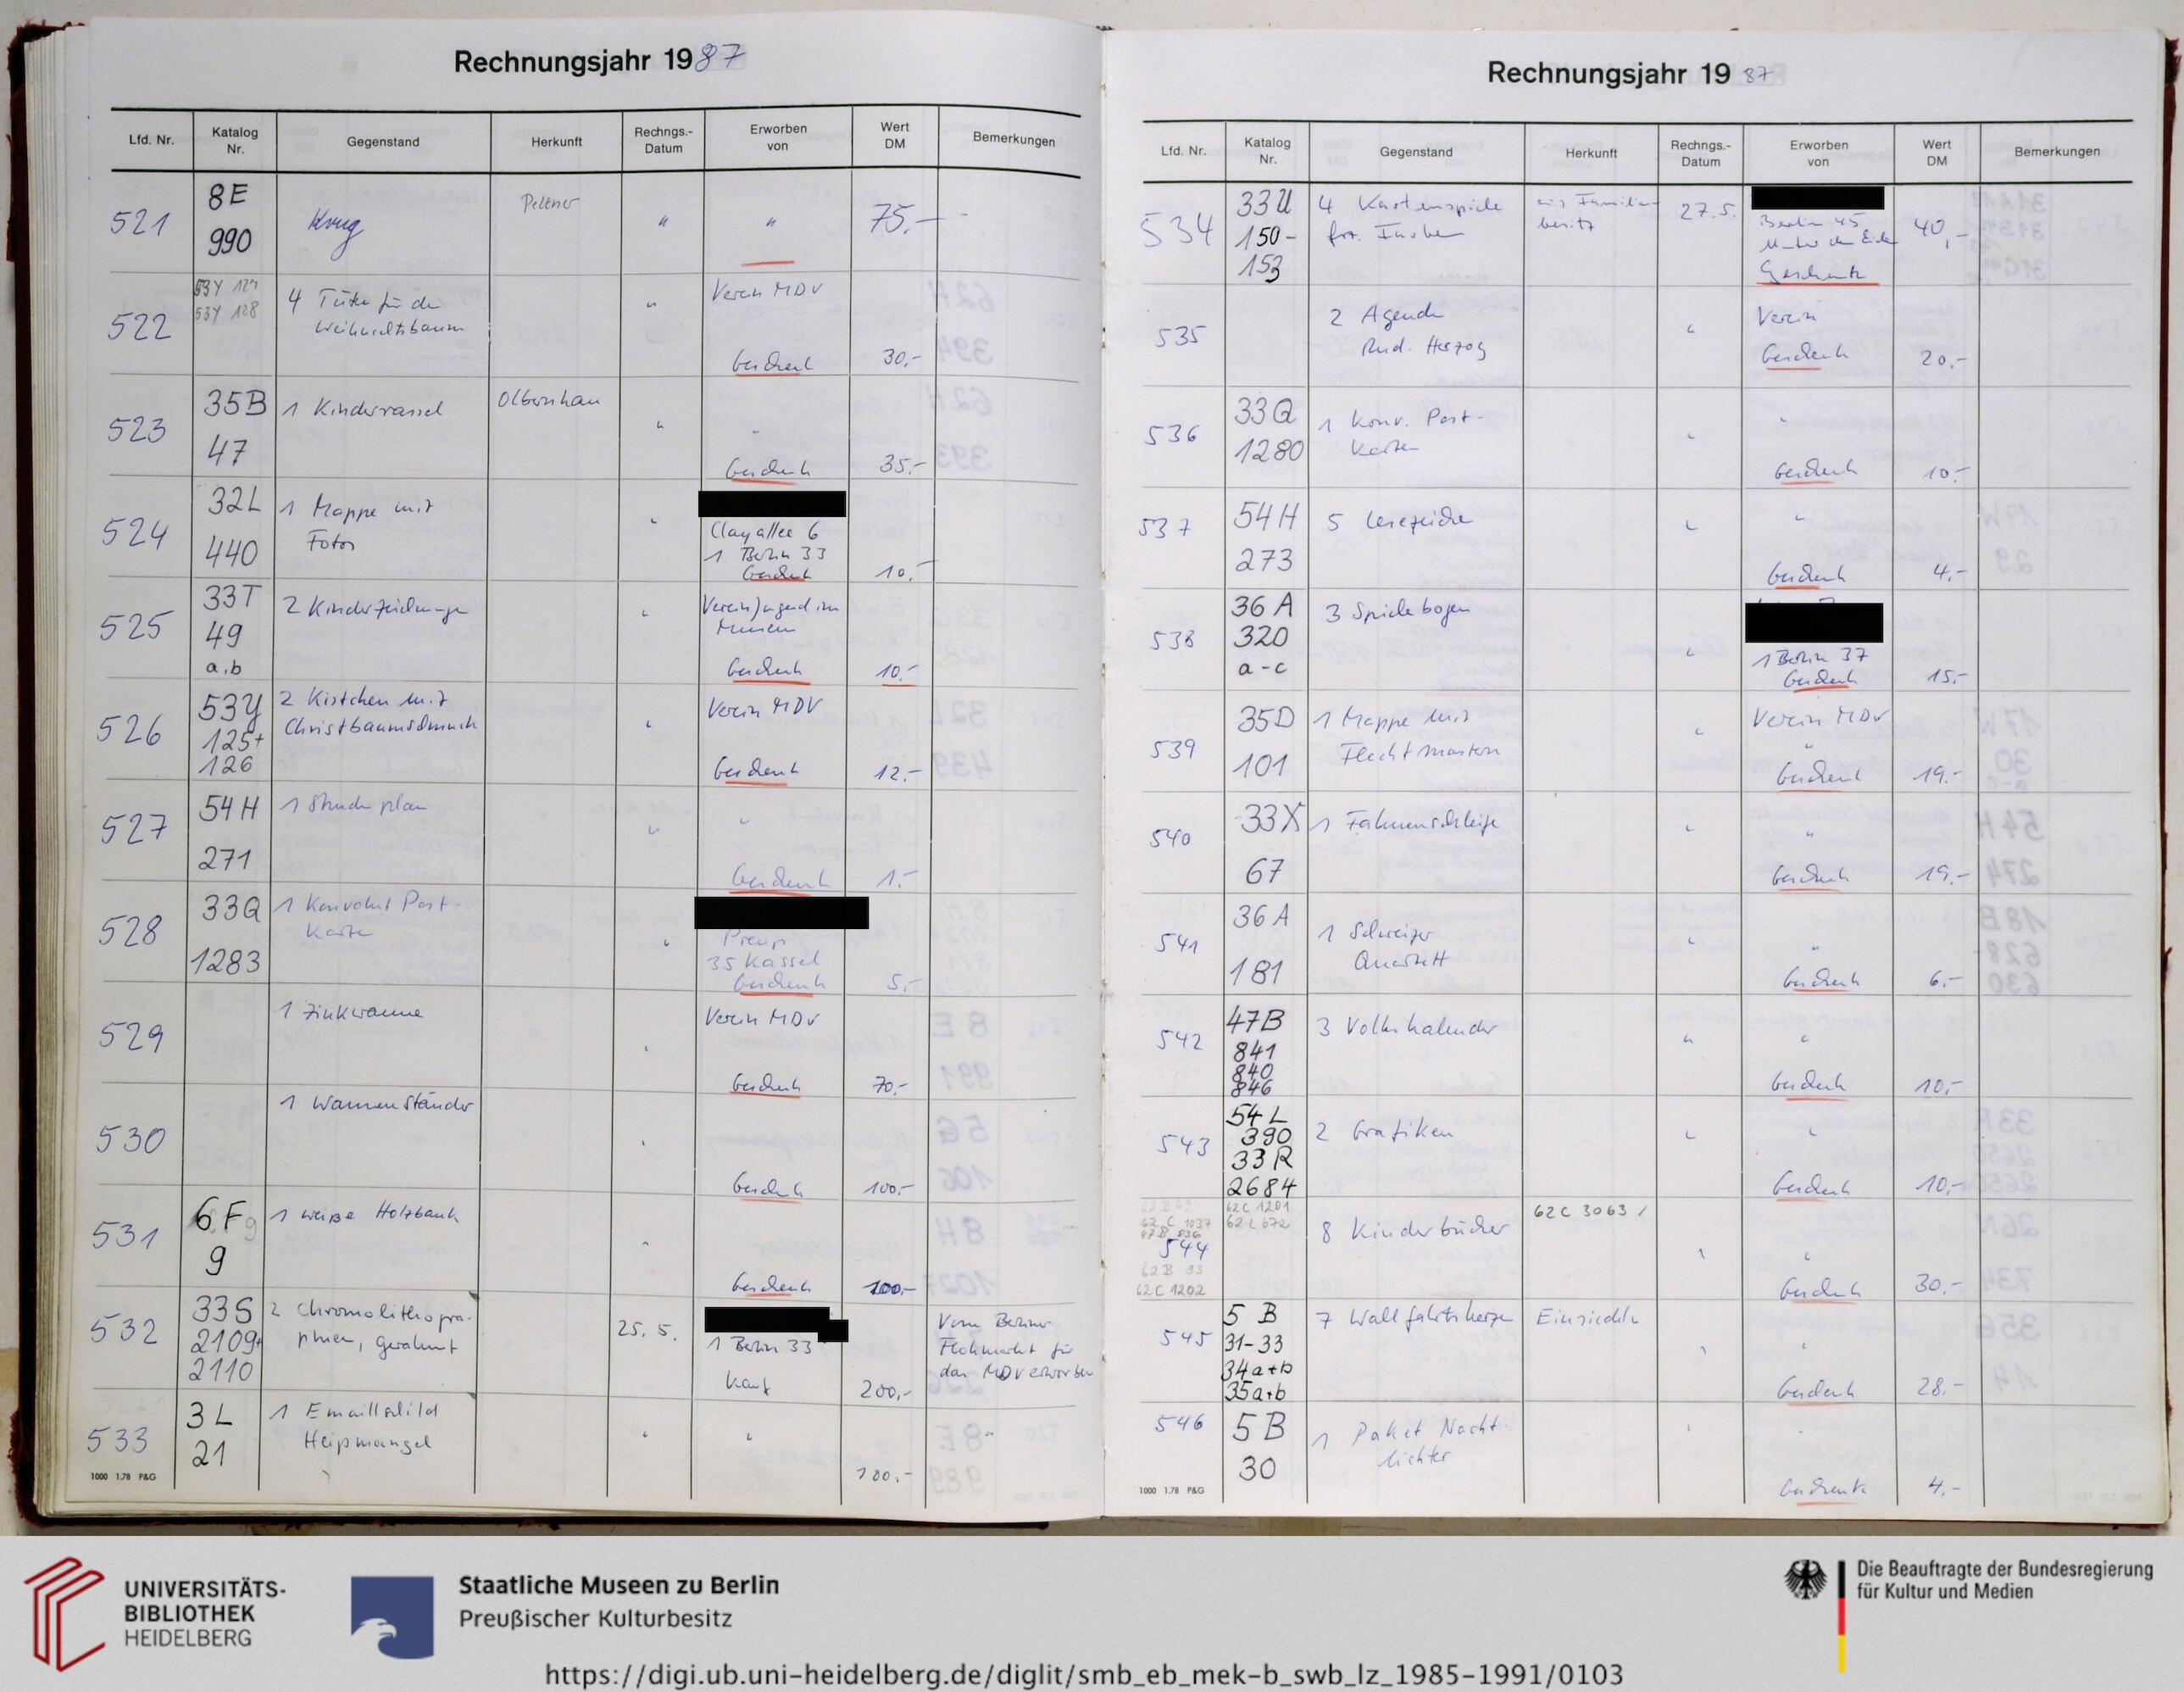 Rechnungsjahr 1987
Lfd. Nr.
Katalog Nr.
Gegenstand
Herkunft
Rechngs.-Datum
Erworben von
Wert DM
Bemerkungen
521
8E
990
Krug
"
"
75.-
522
53Y 127
53Y 128
4 Tüten für den
Weihnachtsbaum
"
Verein MDV
Geschenk
30,-
523
35B
47
1 Kinderrassel
Olbernhau
"
"
Geschenk
35,-
524
32L
440
1 Mappe mit
Fotos
"
Clayallee 6
1 Berlin 33
Geschenk
10,-
525
33T
49
a,b
2 Kinderzeichnungen
"
Verein Jugend im
Museum
Geschenk
10,-
526
53Y
125+
126
2 Kistchen mit
Christbaumschmuck
"
Verein MDV
Geschenk
12,-
527
54H
271
1 Stundenplan
"
"
Geschenk
1.-
528
33Q
1283
1 Konvolut Post-
karten
"
35 Kassel
Geschenk
5,-
529
1 Zinkwanne
"
Verein MDV
Geschenk
70,-
530
1 Wannenständer
"
Geschenk
100,-
531
6F
9
1 weiße Holzbank
"
Geschenk
100,-
532
33S
2109+
2110
2 Chromolithogra-
phien, gerahmt
25. 5.
1 Berlin 33
Kauf
200,-
Vom Berliner
Flohmarkt für
das MDV erworben
533
3L
21
1 Emailschild
Heißmangel
"
"
100,-
"
1000 1.78 P&G
Rechnungsjahr 1987
Lfd. Nr.
Katalog Nr.
Gegenstand
Herkunft
Rechngs.-Datum
Erworben von
Wert DM
Bemerkungen
534
33U
150-
153
4 Kartenspiele
aus Familien-
besitz
27.5.
Berlin 45
Unter den Eichen
Geschenk
40,-
535
2 Agenden
Rud. Herzog
"
Verein
Geschenk
20,-
536
33Q
1280
1 Konv. Post-
karten
"
"
Geschenk
10,-
537
54H
273
5 Lesezeichen
"
"
Geschenk
4,-
538
36A
320
a-c
3 Spielebogen
"
1 Berlin 37
Geschenk
15,-
539
35D
101
1 Mappe mit
Flechtmustern
"
Verein MDV
"
Geschenk
19,-
540
33X
67
1 Fahnenschleife
"
"
Geschenk
19,-
541
36A
181
1 Schweizer
Quartett
"
"
Geschenk
6,-
542
47B
841
840
846
3 Volkskalender
"
"
Geschenk
10,-
543
54L
390
33R
2684
2 Grafiken
"
"
Geschenk
10,-
62 C 1037
47B 836
544
62B 93
62C 1202
62C 1201
62L 672
8 Kinderbücher
62C 3063
"
"
Geschenk
30,-
545
5 B
31-33
34a+b
35a+b
7 Wallfahrtskerzen
Einsiedeln
"
"
Geschenk
28,-
546
5B
30
1 Paket Nacht
lichter
"
Geschenk
4,-
1000 1.78 P&G
UNIVERSITÄTS-
BIBLIOTHEK
HEIDELBERG
Staatliche Museen zu Berlin
Preußischer Kulturbesitz
Die Beauftragte der Bundesregierung
für Kultur und Medien
https://digi.ub.uni-heidelberg.de/diglit/smb_eb_mek-b_swb_lz_1985-1991/0103